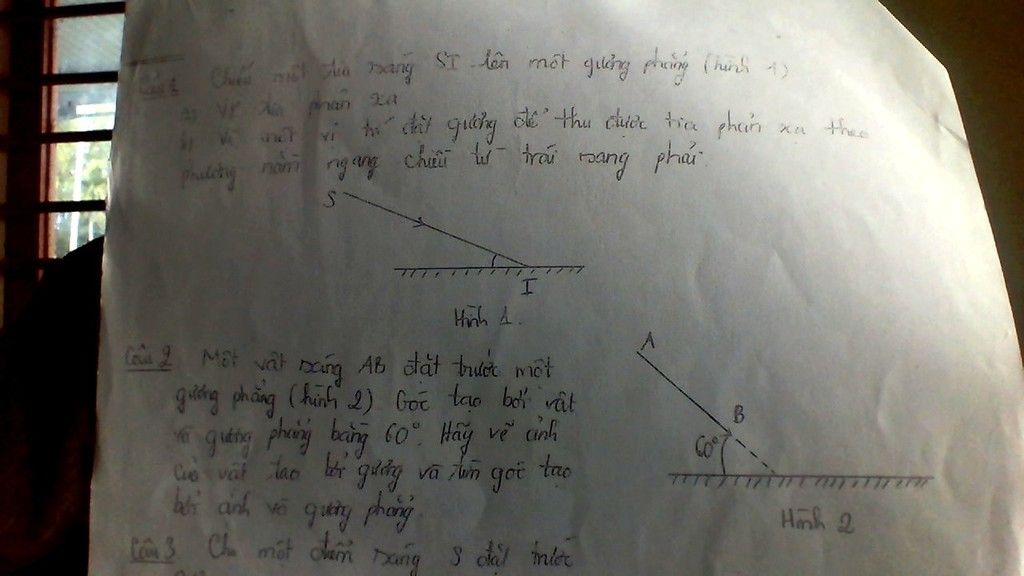 Câu 1 Chiếu một tia sáng SI lên một gương phẳng (hình 1)
a) Vẽ tia phản xạ
b) Vẽ một vị trí đặt gương để thu được tia phản xạ theo
phương nằm ngang chiều từ trái sang phải.
S
I
Hình 1.
Câu 2 Một vật sáng AB đặt trước một
gương phẳng (hình 2) Góc tạo bởi vật
và gương phẳng bằng 60°. Hãy vẽ ảnh
của vật tạo bởi gương và tìm góc tạo
bởi ảnh và gương phẳng.
A
B
60°
Hình 2
Câu 3 Cho một điểm sáng S đặt trước